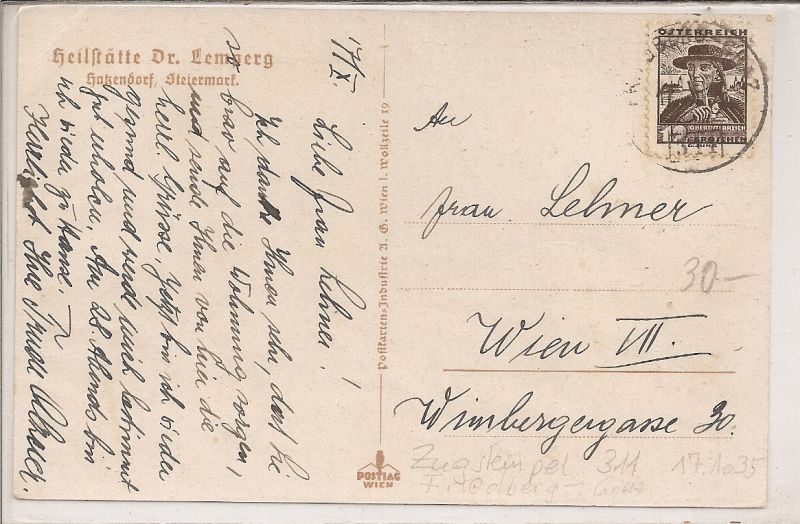 Heilstätte Dr. Lemperg
Hatzendorf, Steiermark.
17/X.
Liebe Frau Lehner!
Ich danke Ihnen sehr, dass Sie
so brav auf die Wohnung sorgen,
und sende Ihnen von hier die
herzl. Grüsse. Jetzt bin ich wieder
gesund und werde mich bestimmt
gut erholen. Am 28 Abends bin
ich wieder zu Hause.
Herzlichst Ihre Trude
Postkarten-Industrie A. G. Wien I. Wollzeile 19
POSTIAG
WIEN
ÖSTERREICH
OBERÖSTERREICH
12 GROSCHEN
An
Frau Lehner
30-
Wien VII.
Wimbergergasse 30.
Zugstempel 311 17.10.35
Friedberg - Graz